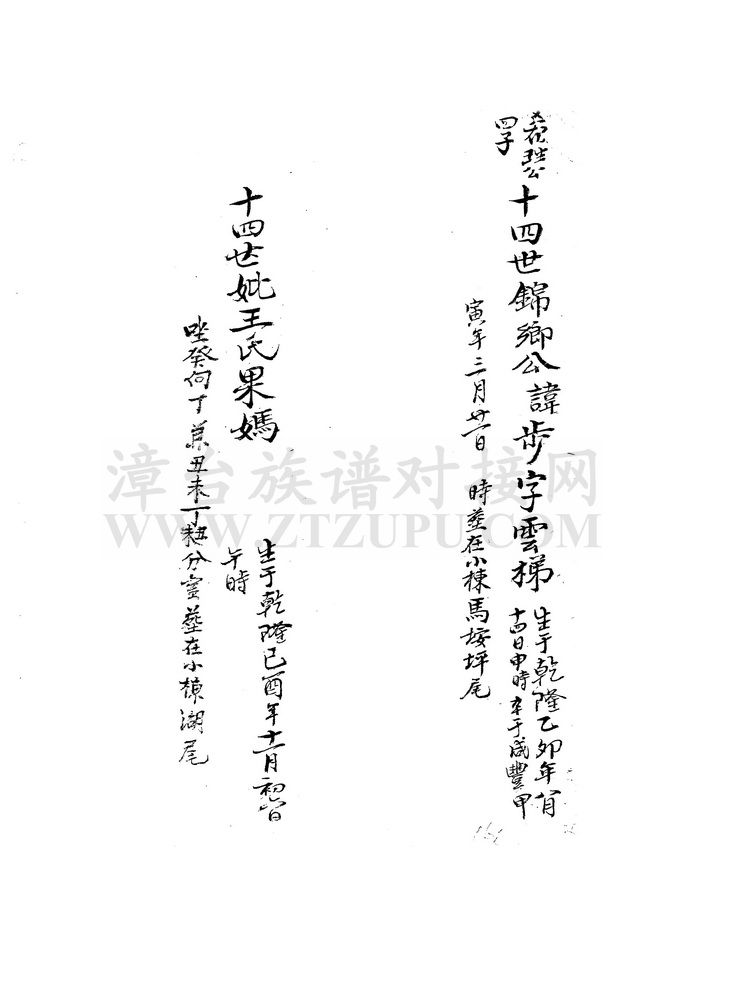 公
四子
十四世錦鄉公諱步字雲梯
生于乾隆乙卯年八月
十四日申時卒于咸豐甲
寅年三月廿一日 時葬在小棟馬垵坪尾
十四世妣王氏果媽
生于乾隆己酉年十一月初
午時
坐癸向丁兼丑未丁分金葬在小棟湖尾
漳台族谱对接网
WWW.ZTZUPU.COM